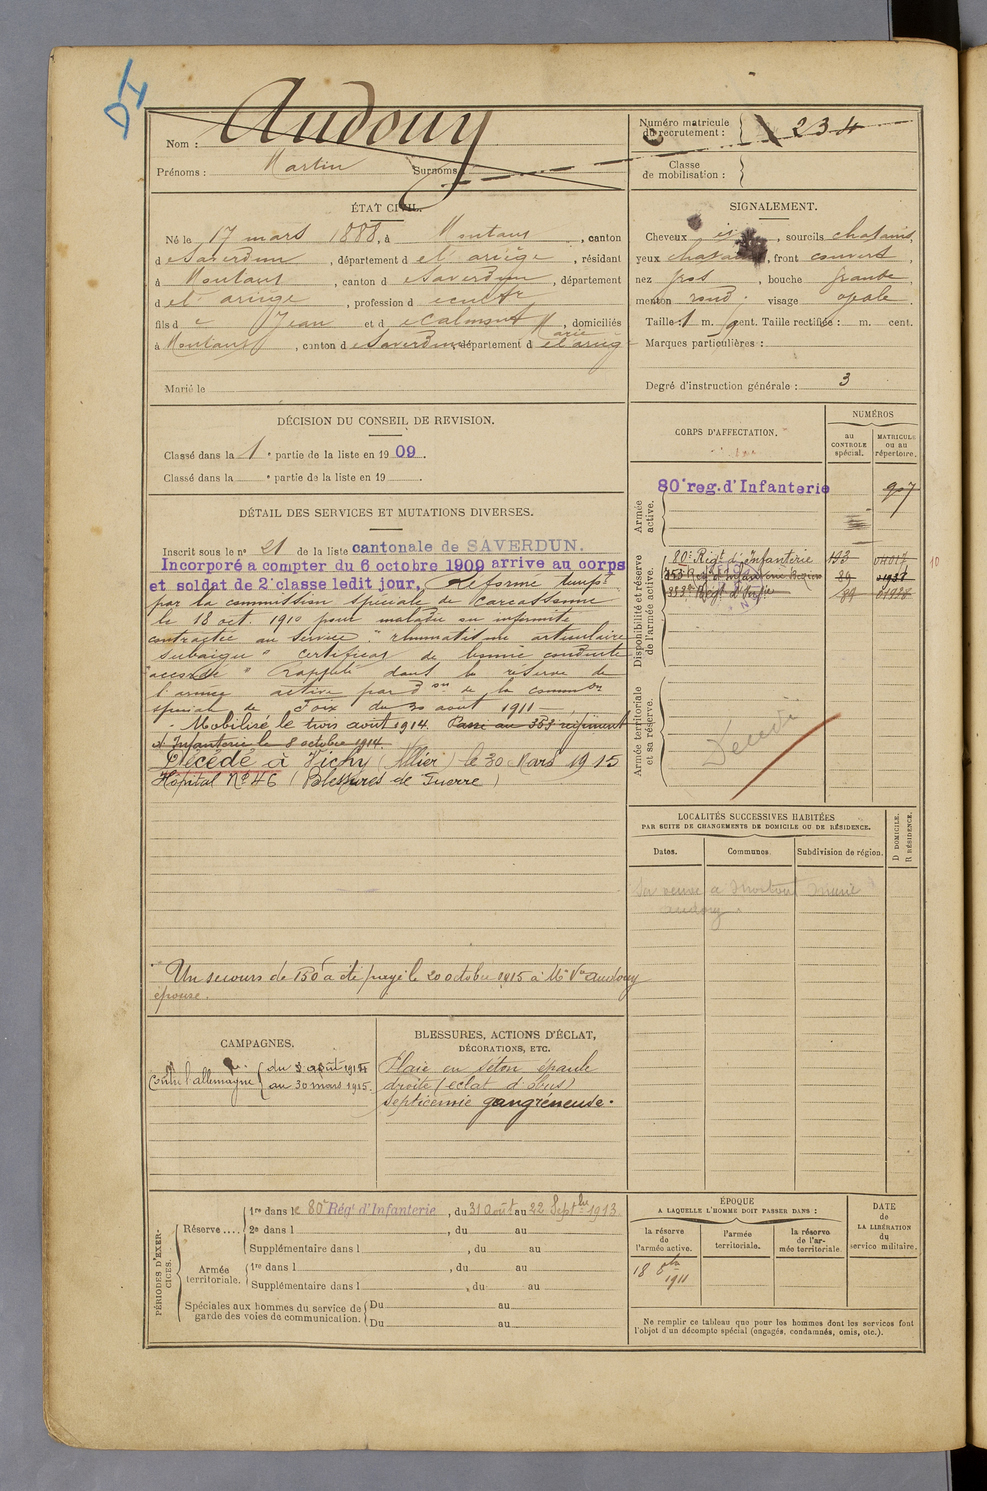 Nom : Audouy
Prénoms : Martin Surnoms :
Numéro matricule du recrutement : 234
Classe de mobilisation :
ÉTAT CIVIL.
Né le 17 mars 1888, à Montaut, canton
de Saverdun, département de l'ariège, résidant
à Montaut, canton de Saverdun, département
de l'ariège, profession de cultr
fils de Jean et de Calmont Marie, domiciliés
à Montaut, canton de Saverdun, département de l'arieg
Marié le
SIGNALEMENT.
Cheveux, sourcils chatains,
yeux, front couvert,
nez gros, bouche grande,
menton rond. visage ovale.
Taille : 1 m. cent. Taille rectifiée : m. cent.
Marques particulières :
Degré d'instruction générale : 3
DÉCISION DU CONSEIL DE REVISION.
Classé dans la 1e partie de la liste en 1909.
Classé dans la e partie de la liste en 19
DÉTAIL DES SERVICES ET MUTATIONS DIVERSES.
Inscrit sous le no 21 de la liste cantonale de SAVERDUN.
Incorporé a compter du 6 octobre 1909 arrive au corps
et soldat de 2e classe ledit jour, Réformé tempre
par la commission spéciale de Carcassonne
le 18 oct. 1910 pour maladie ou infirmité
contractée au service "rhumatisme articulaire
subaigu" certificat de bonne conduite
"accordé" Rappelé dans la réserve de
l'armée active par don de la common
spéciale de Foix du 30 août 1911
- Mobilisé le trois août 1914. Passé au 353 régiment
d'Infanterie le 8 octobre 1914
Décédé à Vichy (Allier) le 30 Mars 1915
Hôpital No 46 (Blessures de Guerre)
Un secours de 150f a été payé le 20 octobre 1915 à Me Ve Audouy
épouse.
CORPS D'AFFECTATION.
NUMÉROS
au CONTROLE spécial.
MATRICULE ou au répertoire.
Armée active.
80e reg. d'Infanterie 907
Disponibilité et réserve de l'armée active.
80e Régt d'Infanterie 193 04017 10
353e Régt d'Infanterie 29
353e Régt d'Infie 29
Armée territoriale et sa réserve.
Décédé
LOCALITÉS SUCCESSIVES HABITÉES
PAR SUITE DE CHANGEMENTS DE DOMICILE OU DE RÉSIDENCE.
Dates. Communes. Subdivision de région.
D DOMICILE. R RÉSIDENCE.
Sa veuve a Montaut
audouy.
CAMPAGNES.
Contre l'allemagne du 3 août 1914
au 30 mars 1915.
BLESSURES, ACTIONS D'ÉCLAT,
DÉCORATIONS, ETC.
Plaie en séton épaule
droite (eclat d'obus)
septicémie gangréneuse.
PÉRIODES D'EXERCICES.
Réserve....
1re dans le 80e Régt d'Infanterie, du 31 Août au 22 Septbre 1913
2e dans l, du au
Supplémentaire dans l, du au
Armée territoriale.
1re dans l, du au
Supplémentaire dans l, du au
Spéciales aux hommes du service de garde des voies de communication.
Du au
Du au
ÉPOQUE
A LAQUELLE L'HOMME DOIT PASSER DANS :
la réserve de l'armée active.
l'armée territoriale.
la réserve de l'armée territoriale
DATE de LA LIBÉRATION du service militaire.
18 8bre 1911
Ne remplir ce tableau que pour les hommes dont les services font
l'objet d'un décompte spécial (engagés, condamnés, omis, etc.).